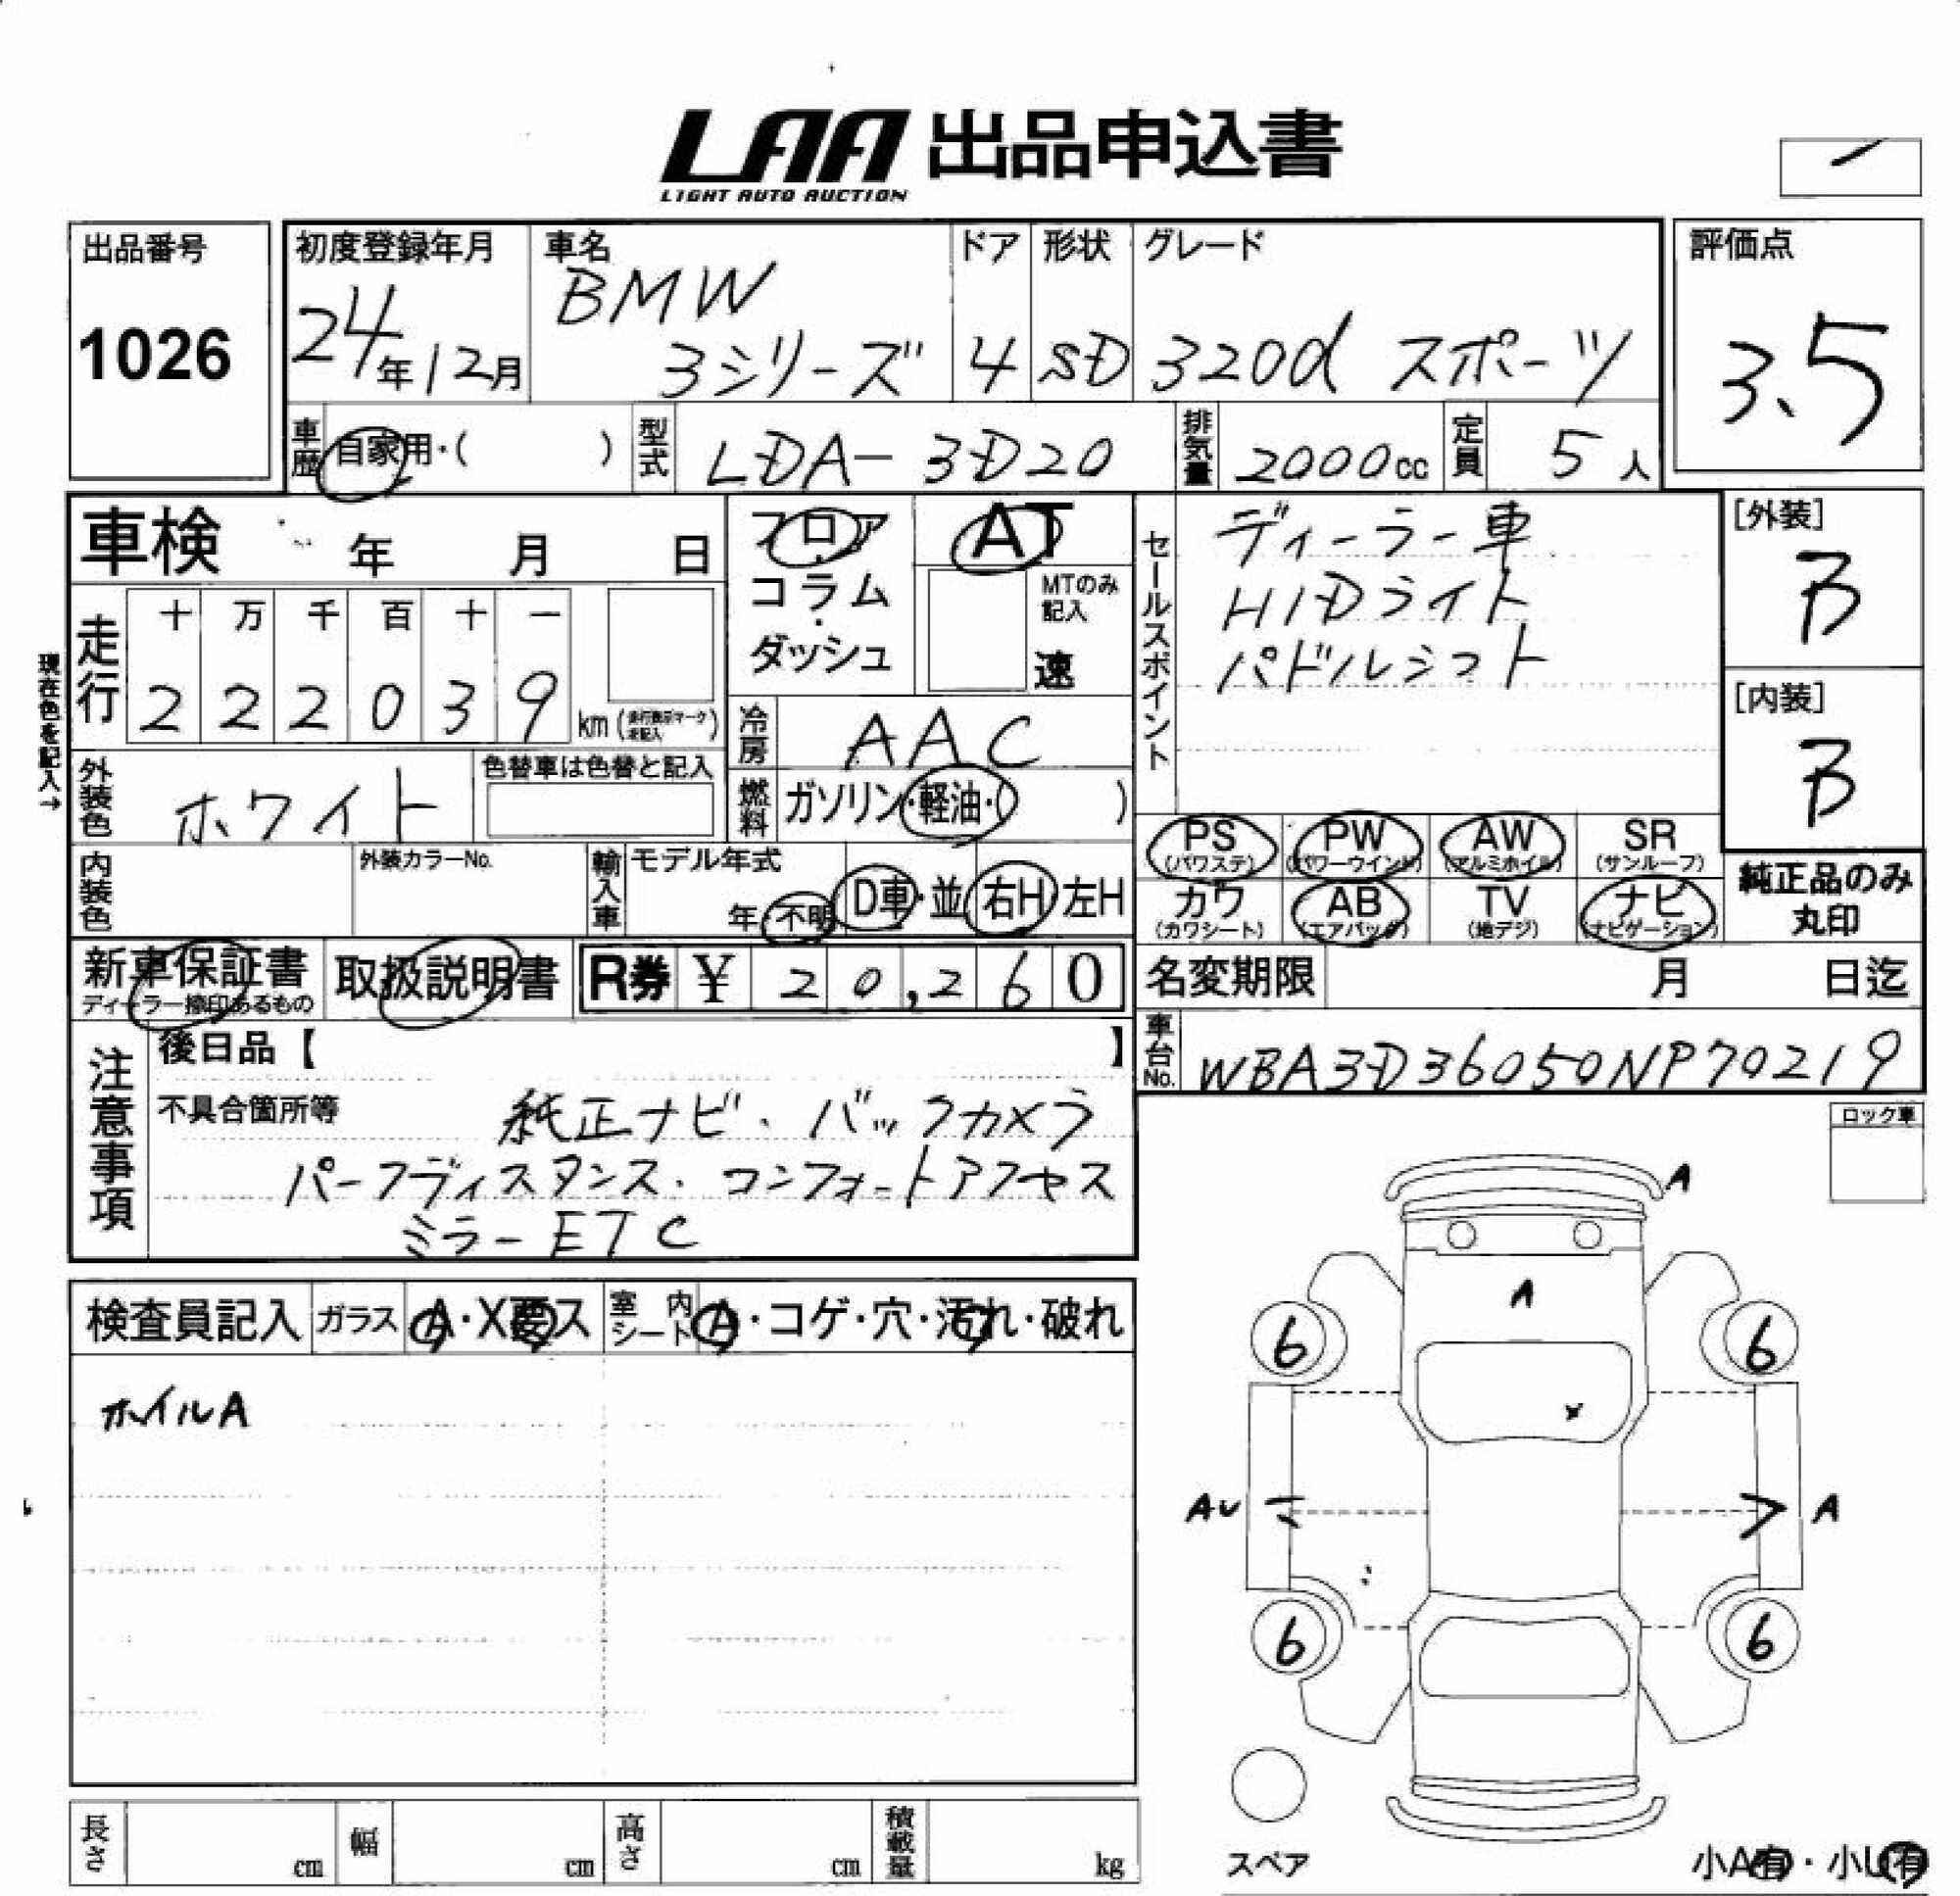 LAA 出品申込書
LIGHT AUTO AUCTION
出品番号
1026
初度登録年月
24年12月
車名
BMW
3シリーズ
ドア
4
形状
SD
グレード
320d スポーツ
評価点
3.5
車歴 自家用・( )
型式 LDA-3D20
排気量 2000cc
定員 5人
車検 年 月 日
フロア・コラム・ダッシュ
AT
MTのみ記入
速
セールスポイント
ディーラー車
HIDライト
パドルシフト
[外装]
B
[内装]
B
現在色を記入→
走行
十 万 千 百 十 一
2 2 2 0 3 9 km
冷房 AAC
外装色 ホワイト
色替車は色替と記入
燃料 ガソリン・軽油・( )
内装色
外装カラーNo.
輸入車
モデル年式
年・不明
D車・並
右H・左H
PS (パワステ)
PW (パワーウインド)
AW (アルミホイル)
SR (サンルーフ)
カワ (カワシート)
AB (エアバッグ)
TV (地デジ)
ナビ (ナビゲーション)
純正品のみ丸印
新車保証書
ディーラー捺印あるもの
取扱説明書
R券 ¥ 20,260
名変期限 月 日迄
車台No. WBA3D36050NP70219
注意事項
後日品【 】
不具合箇所等
純正ナビ、バックカメラ
パークディスタンス、コンフォートアクセス
ミラーETC
ロック車
検査員記入
ガラス A・X要ス
室内シート A・コゲ・穴・汚れ・破れ
ホイルA
A
A
6 6
X
AU A
6 6
スペア
小A有・小U有
長さ cm
幅 cm
高さ cm
積載量 kg